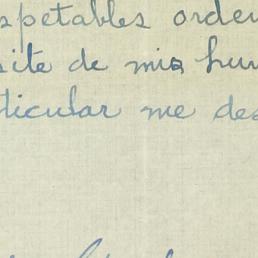 spetables orden
site de mis hum
ticular me des